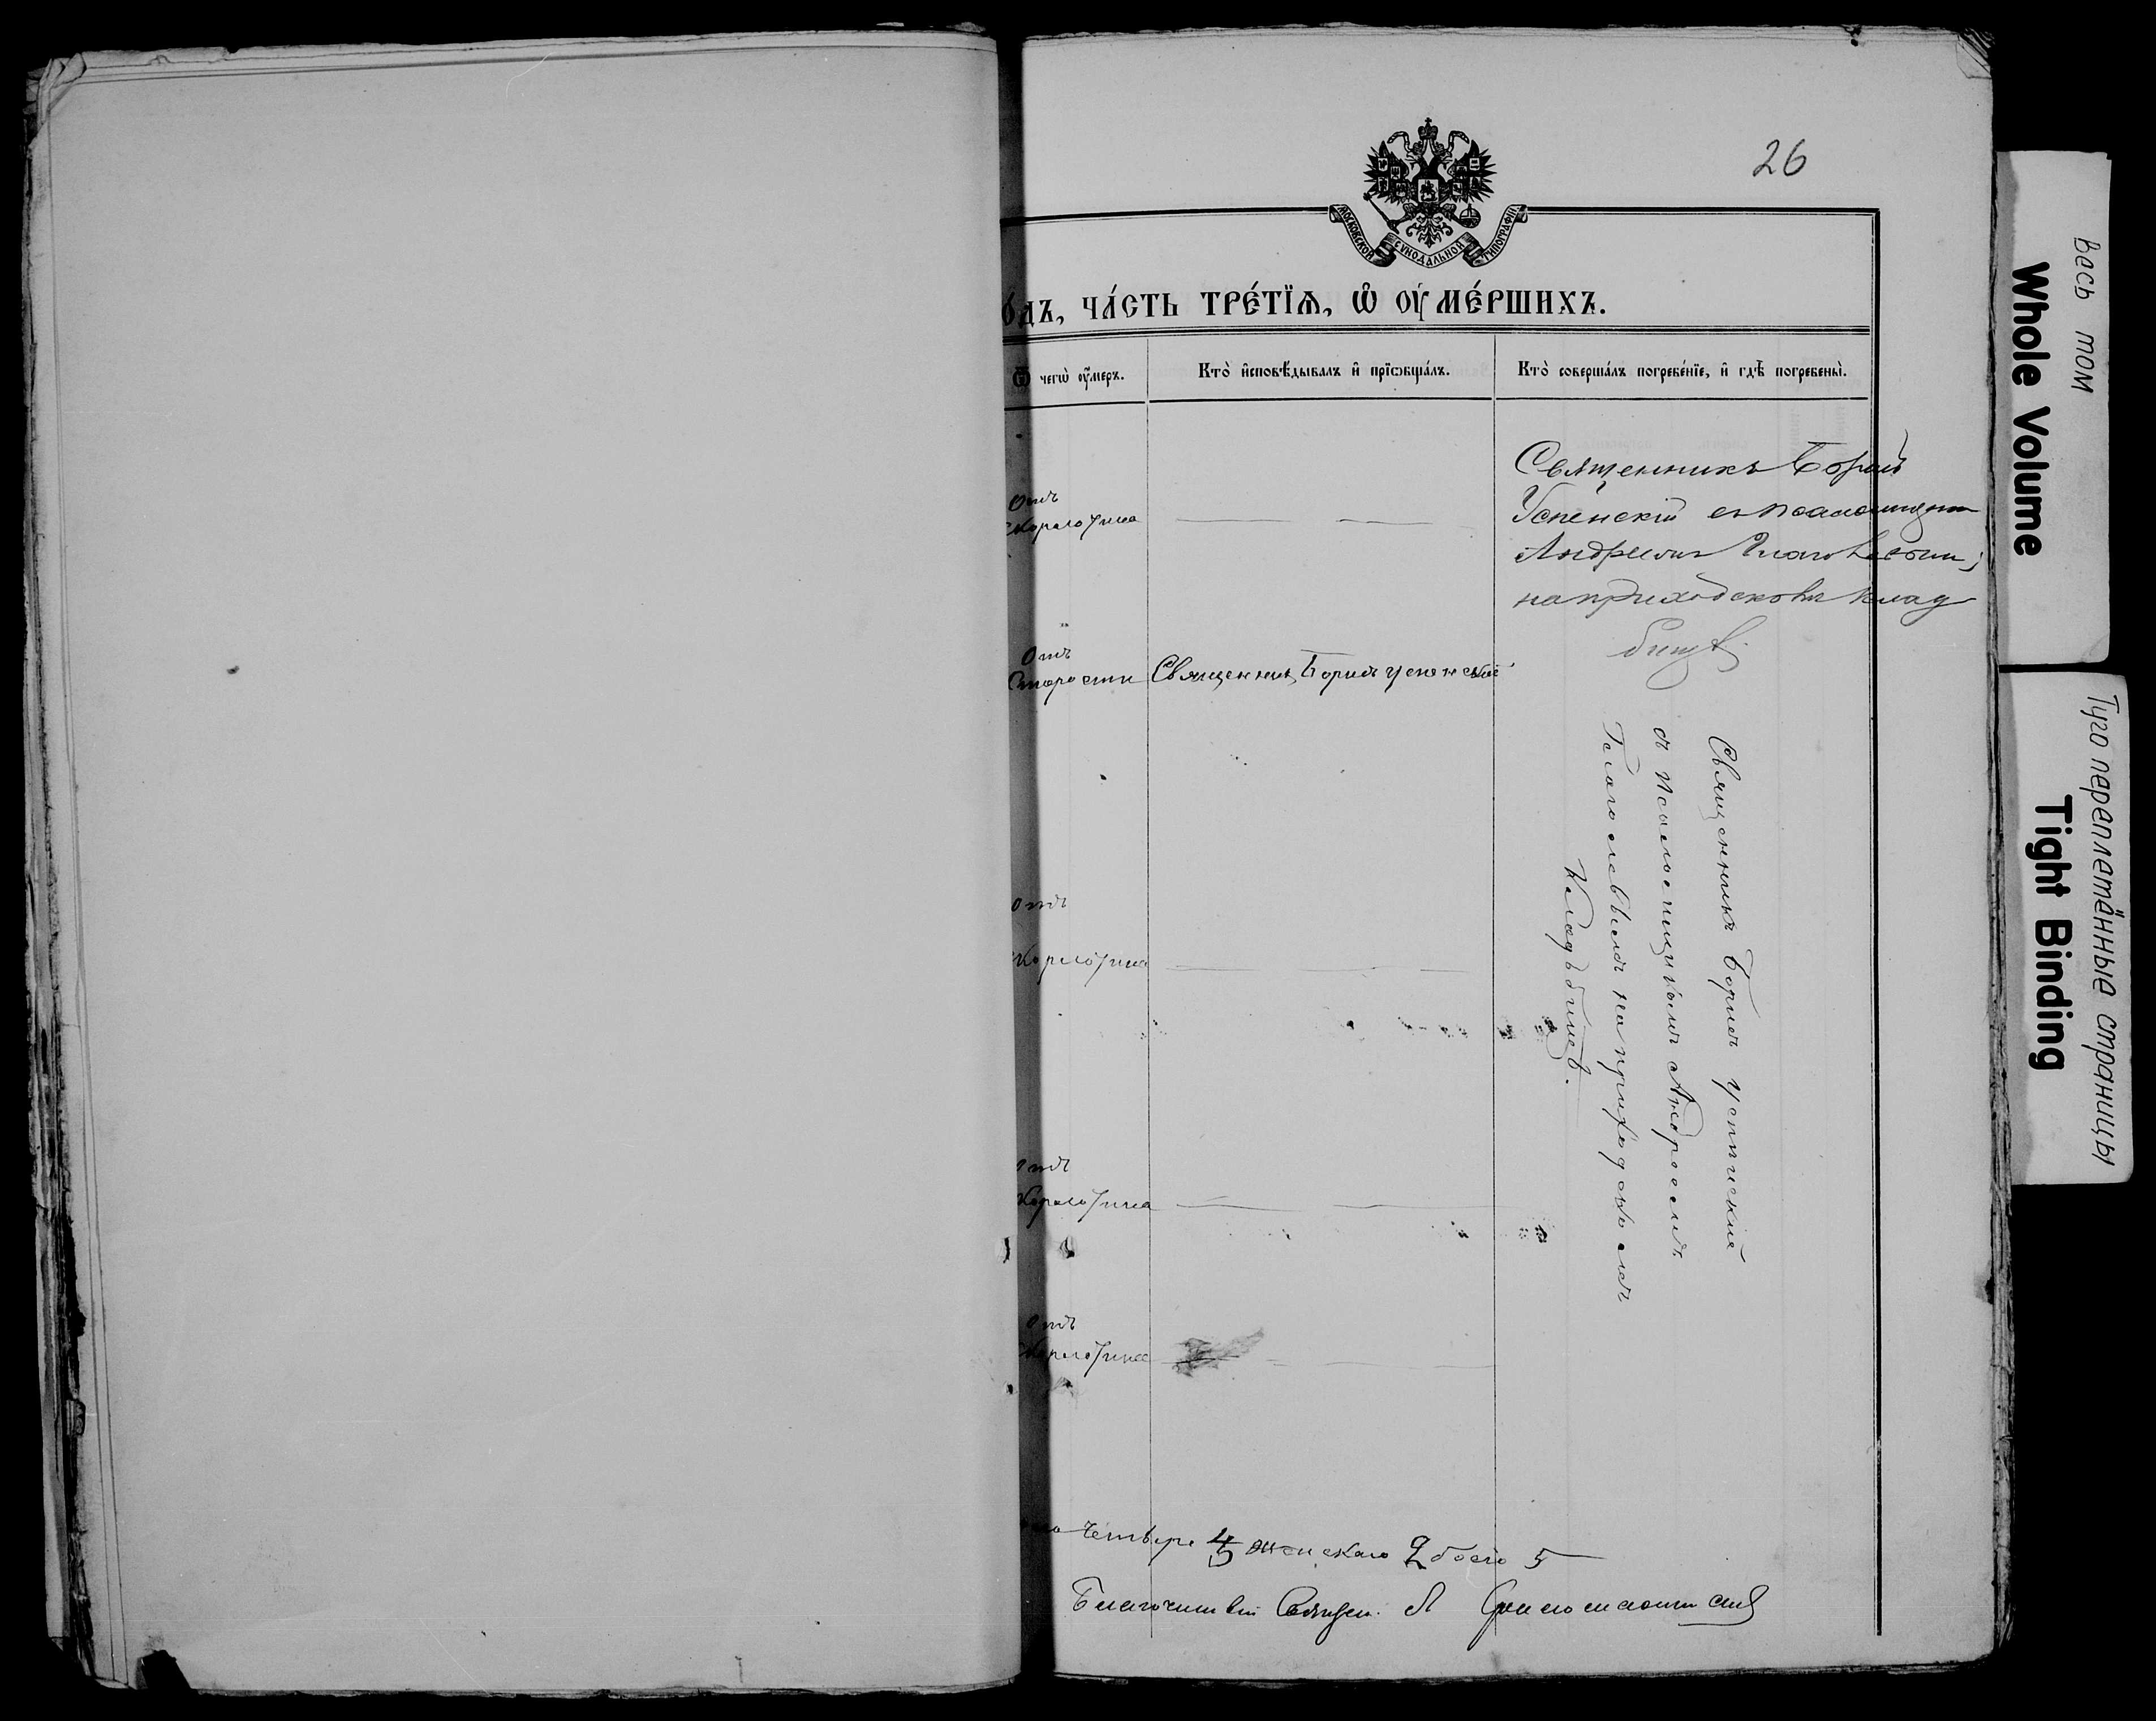 26
МОСКОВСКОЙ СѴНОДАЛЬНОЙ ТИПОГРАФІИ
о́дъ, ча́сть тре́тїѧ, ѡ҆ ᲂу҆ме́ршихъ.
Ѿ чегѡ̀ ᲂу҆́меръ.
Кто̀ и҆сповѣ́дывалъ и҆ прїѡбща́лъ.
Кто̀ соверша́лъ погребе́нїе, и҆ гдѣ̀ погребены̀.
Священникъ Борисъ
Успенскій съ псаломщикомъ
Андреемъ
на приходскомъ клад
бищѣ.
Отъ
скарлатина
Отъ
Старости
Священникъ Борисъ Успенскій
Священникъ Борисъ Успенскій
съ Псаломщикомъ Андреемъ
на приходскомъ
Кладъбищѣ.
Отъ
скарлатина
Отъ
скарлатина
Отъ
скарлатина
четыре 4 женскаго 2 всего 5
Благочинный Священ.
Весь том
Whole Volume
Туго переплетённые страницы
Tight Binding